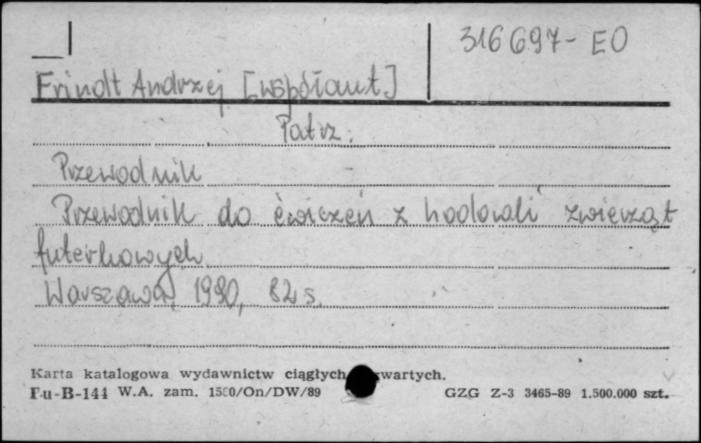 316697-EO
Frindt Andrzej [współaut]
Patrz:
Przewodnik
Przewodnik do ćwiczeń z hodowli zwierząt
futerkowych
Warszawa, 1990, 82 s.
Karta katalogowa wydawnictw ciągłych wartych.
Fu-B-144 W.A. zam. 1580/On/DW/89 GZG Z-3 3465-89 1.500.000 szt.